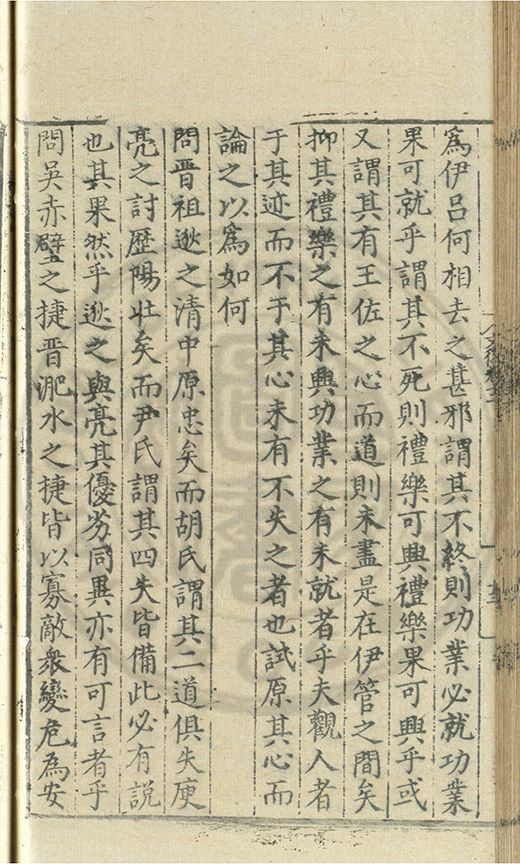 爲伊呂何相去之甚邪謂其不終則功業必就功業
果可就乎謂其不死則禮樂可興禮樂果可興乎或
又謂其有王佐之心而道則未盡是在伊管之間矣
抑其禮樂之有未興功業之有未就者乎夫觀人者
于其迹而不于其心未有不失之者也試原其心而
論之以爲如何
問晉祖逖之清中原忠矣而胡氏謂其二道俱失庾
亮之討歷陽壯矣而尹氏謂其四失皆備此必有說
也其果然乎逖之與亮其優劣同異亦有可言者乎
問吳赤壁之捷晉淝水之捷皆以寡敵衆變危為安